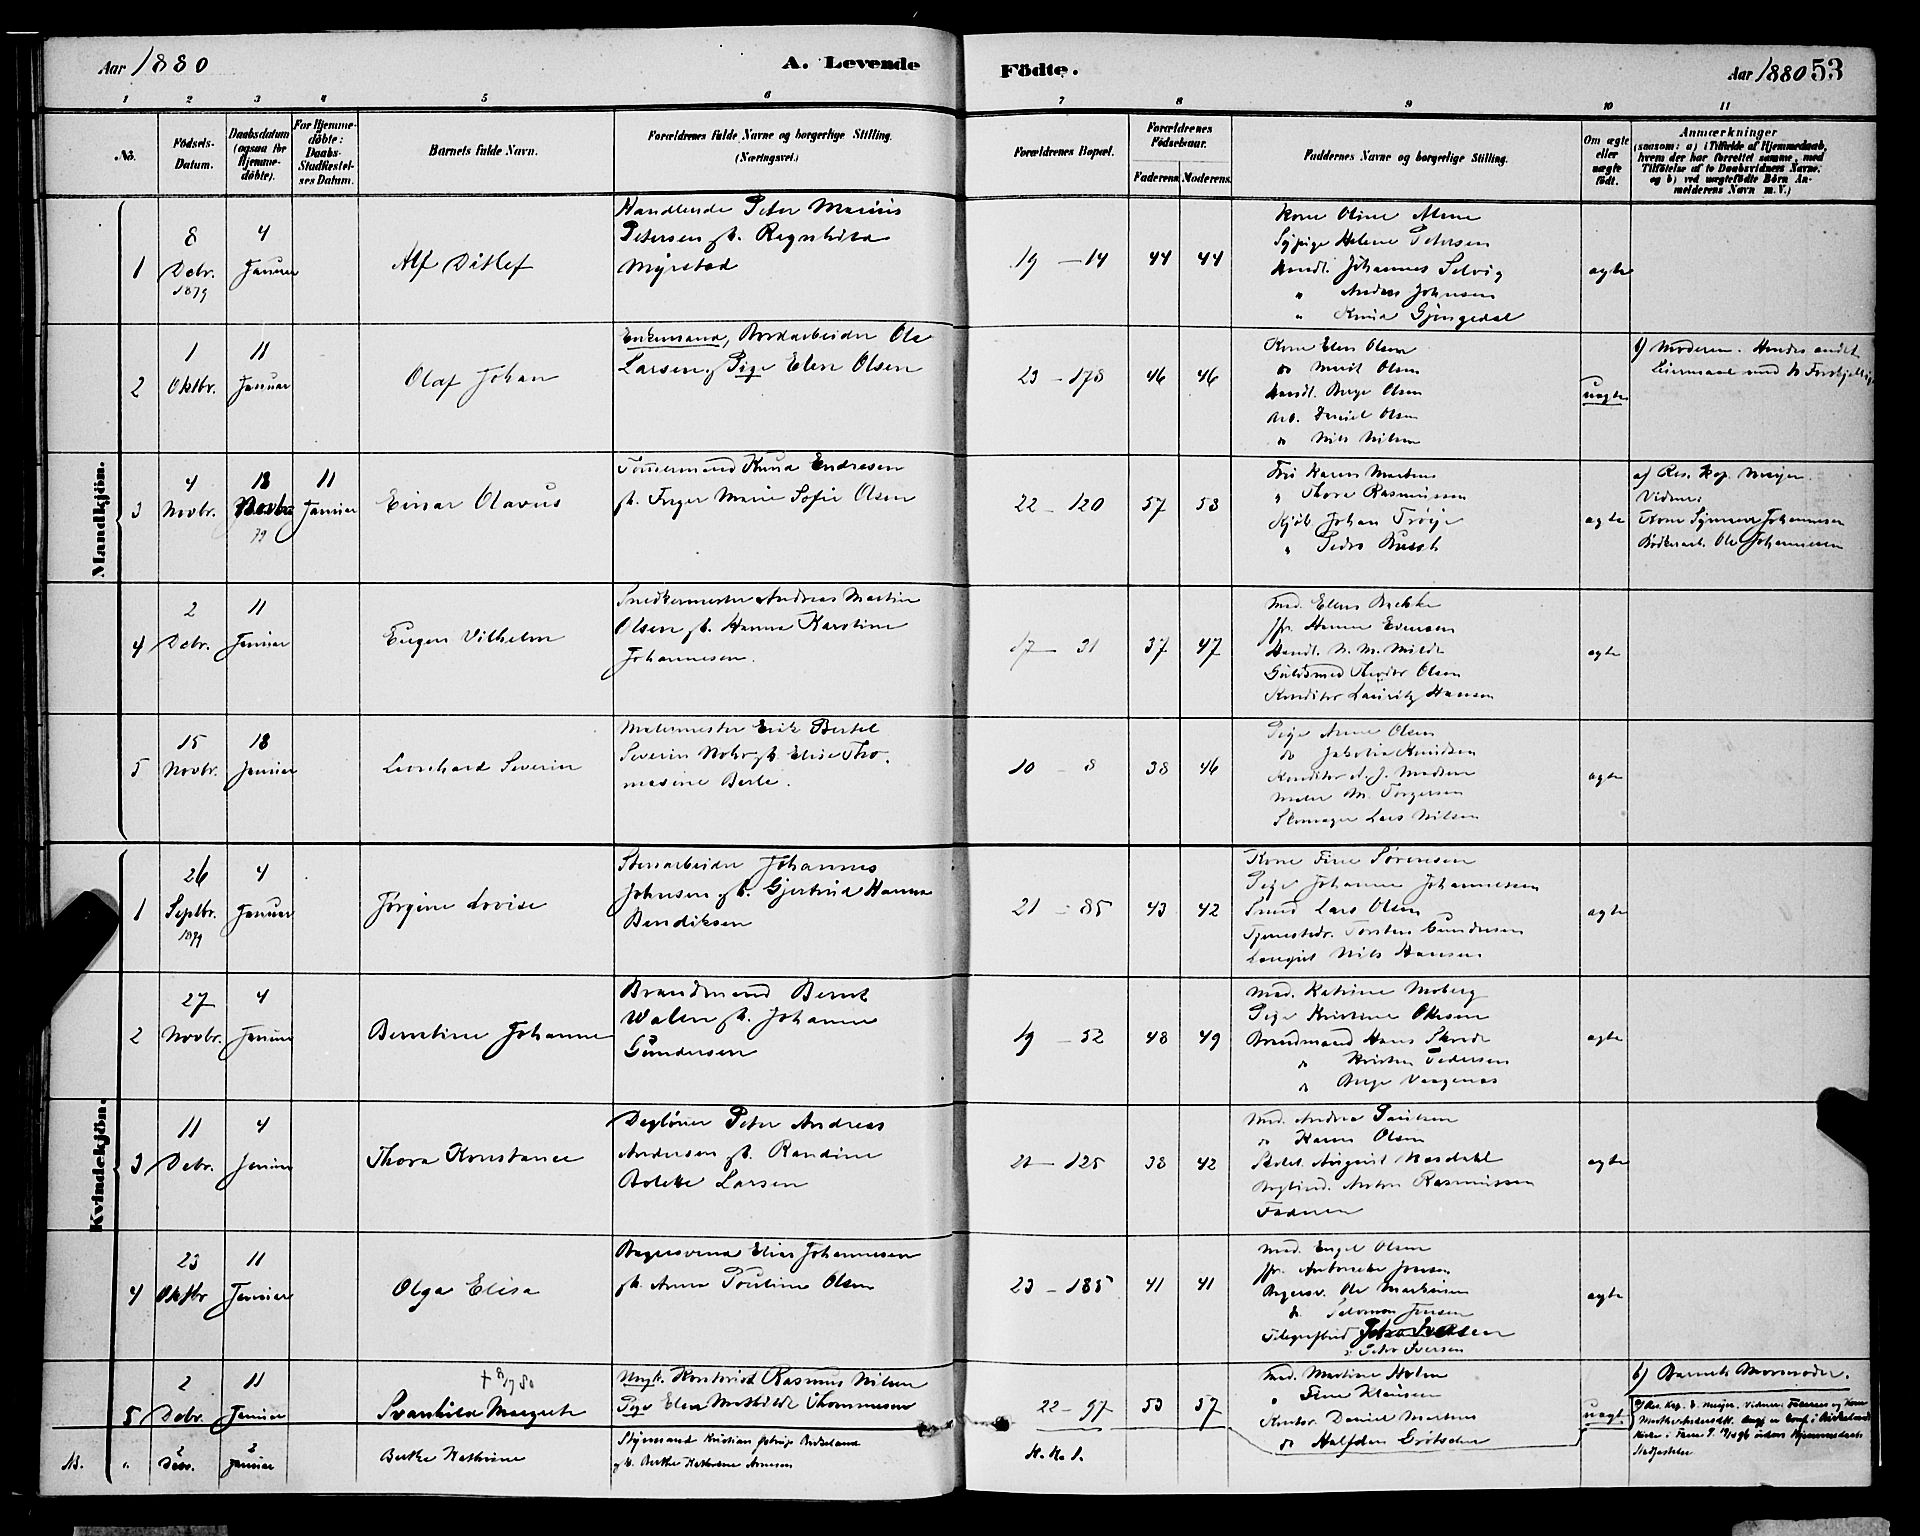 Aar 1880
A. Levende
Födte.
Aar 1880 53
1 2 3 4 5 6 7 8 9 10 11
No.
Födsels-Datum.
Daabsdatum (ogsaa for Hjemme-döbte).
For Hjemme-döbte: Daabs-Stadfæstel-ses Datum.
Barnets fulde Navn.
Forældrenes fulde Navne og borgerlige Stilling. (Næringsvei.)
Forældrenes Bopæl.
Forældrenes Födselsaar.
Faderens. Moderens.
Faddernes Navne og borgerlige Stilling.
Om ægte eller uægte födt.
Anmærkninger
(saasom: a) i Tilfælde af Hjemmedaab, hvem der har forrettet samme, med Tilföielse af to Daabsvidners Navne. og b) ved uægtefödte Börn An-melderens Navn m. V.)
Mandkjön.
1
8 Debr. 1879
4 Januar
Alf Ditlef
Handlende Peter Marius
Petersen g/t. Ragnhild
Myrstad
19 — 14
44
44
Kone Oline
Sypige Helene Petersen
Handl. Johannes Selvig
" Anders Johnsen
" Knud Gjengedal
ægte
2
1 Oktbr.
11 Januar
Olaf Johan
Enkemand, Bordarbeider Ole
Larsen, Pige Elen Olsen
23 - 178
46
46
Kone Elen Olsen
do Marit Olsen
Handl. Berge Olsen
Arb. Daniel Olsen
do Nils Nilsen
uægte
b) Moderen. Hendes andet
Leiermaal med to
3
4 Novbr.
18 Novbr 79
11 Januar
Einar Olavus
Tømmermand Knud Endresen
g/t. Inger Marie Sofie Olsen
22 - 120
57
58
Fru Karen Martens
" Thora Rasmussen
Kjøb. Johan Trøye
" Pedro Rusch
ægte
a) Res. Kap. Meyer.
Vidner:
Kone Johannesen
Bødkerarb. Ole Johannesen
4
2 Debr.
11 Januar
Eugen Vilhelm
Snedkermester Andreas Martin
Olsen g/t. Hanna Karoline
Johannesen.
17 — 31
37
47
Mad. Elen Bakke
Jfr. Hanna Evensen
Handl. N. M. Milde
Guldsmed Theodor Olsen
Konditor Lauritz Hansen
ægte
5
15 Novbr.
18 Januar
Leonhard Severin
Malermester Erik Bertel
Severin Nohr g/t. Elise Tho-
masine Berle.
10 — 8
38
46
Pige Anne Olsen
do Jakobia Knudsen
Konditor A. J. Madsen
Maler M. Torgersen
Skomager Lars Nilsen
ægte
Kvindekjön.
1
26 Septbr. 1879
4 Januar
Jørgine Lovise
Stenarbeider Johannes
Johnsen g/t. Gjertrud Hanna
Bendiksen
21 - 85
43
42
Kone Fine Sørensen
Pige Johanne Johannessen
Smed Lars Olsen
Tjenestedr. Torsten Gundersen
Nils Hansen
ægte
2
27 Novbr.
4 Januar
Berntine Johanne
Brandmand Bernt
Walen g/t. Johanne
Gundersen
19 — 52
48
49
Mad. Katrine Moberg
Pige Kristine Olsson
Brandmand Hans Skrede
do Kristen Pedersen
do Berge Vaagenes
ægte
3
11 Debr.
4 Januar
Thora Konstance
Dagløner Peter Andreas
Andersen g/t. Randine
Bolette Larsen
21 — 125
38
42
Mad. Andrea Paulsen
do Karen Olsen
August Mosdahl
Bogbind. Anton Rasmussen
Faderen
ægte
4
23 Oktbr
11 Januar
Olga Elisa
Bagersvend Elias Johannesen
g/t. Anna Pouline Olsen
23 — 185
41
41
Mad. Engel Olsen
Jfr. Antonette Jensen
Bagersv. Ole Martinsen
do Salomon Jensen
Telegrafbud
" Peter Iversen
ægte
5
2 Debr.
11 Januar
+ 8/1 80
Svanhild Margrete
Ungk. Rasmus Nilsen
Pige Elen Mathilde Thommesen
22 — 97
53
57
Mad. Martine Holm
" Fine Klausen
Kontor. Daniel Martens
do Halfdan
uægte
b) Barnets Mormoder.
N3.
"
Debr.
Januar
Berthe Kathrine
Styrmand Kristian Birkeland
g/t. Berthe Kathrine Arnesen
N. K. S.